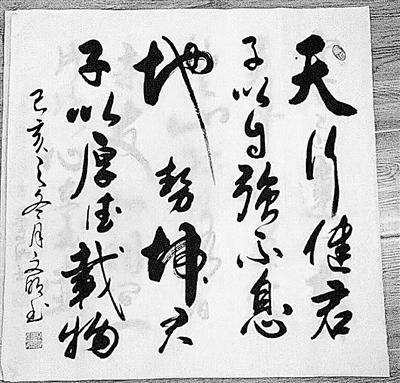 天行健君
子以自強不息
地勢坤君
子以厚德載物
己亥之冬月文明书